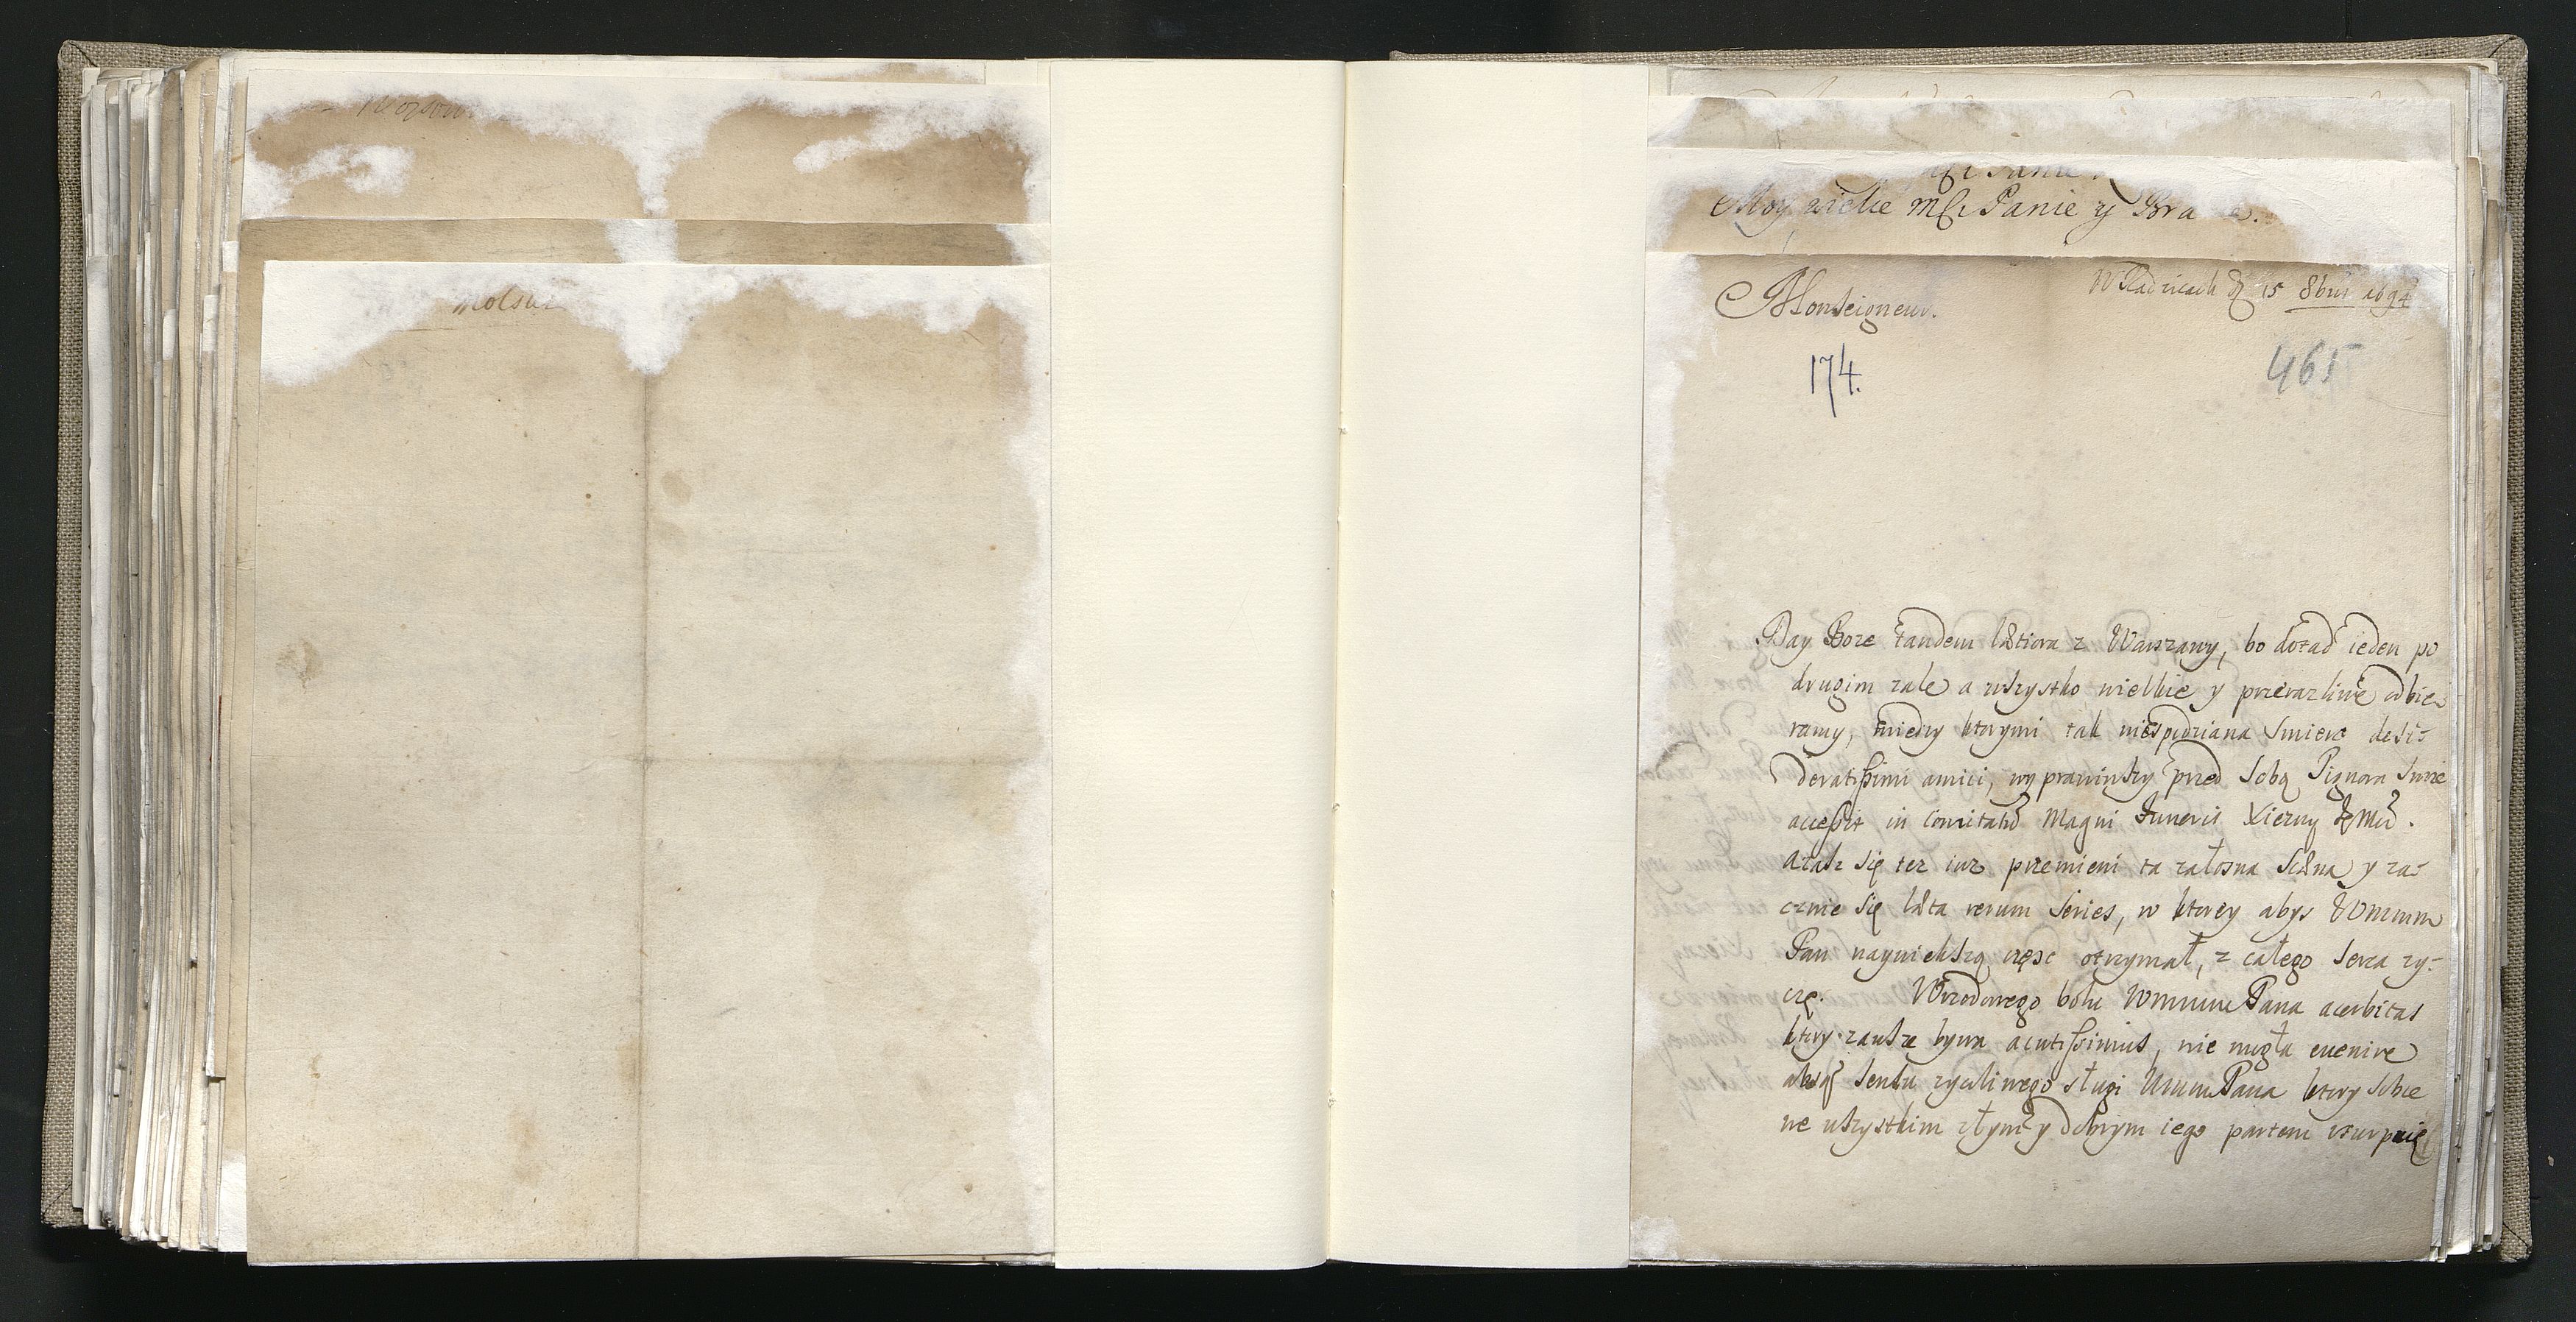 Moy wielce Mści Panie y Bra
W Radzicach D 15 8bris 1694
Monseigneur.
174.
465
Day Boze tandem lætiora z Warszawy, bo dotad ieden po
drugim zale a wszystko wielkie y przerazliwe odbie-
ramy, miedzy ktorymi tak niespodziana smierc desi-
deratissimi amici, wyprawiwszy przed sobą Pignora
accessit in comitatum Magni Funeris Xiezny JeMci.
Atak się tez iuz przemieni ta załosna scæna y za-
cznie się læta rerum series, w ktorey abys WMmm
Pan naywiekszą częsc otrzymał, z całego serca zy-
czę. Wrzodowego bolu WmmmPana acerbitas
ktory zawsze bywa acutissimus, nie mogła euenire
absq sensu zyczliwego sługi WmmmPana ktory sobie
we wszystkim złym y dobrym iego partem vsurpuię